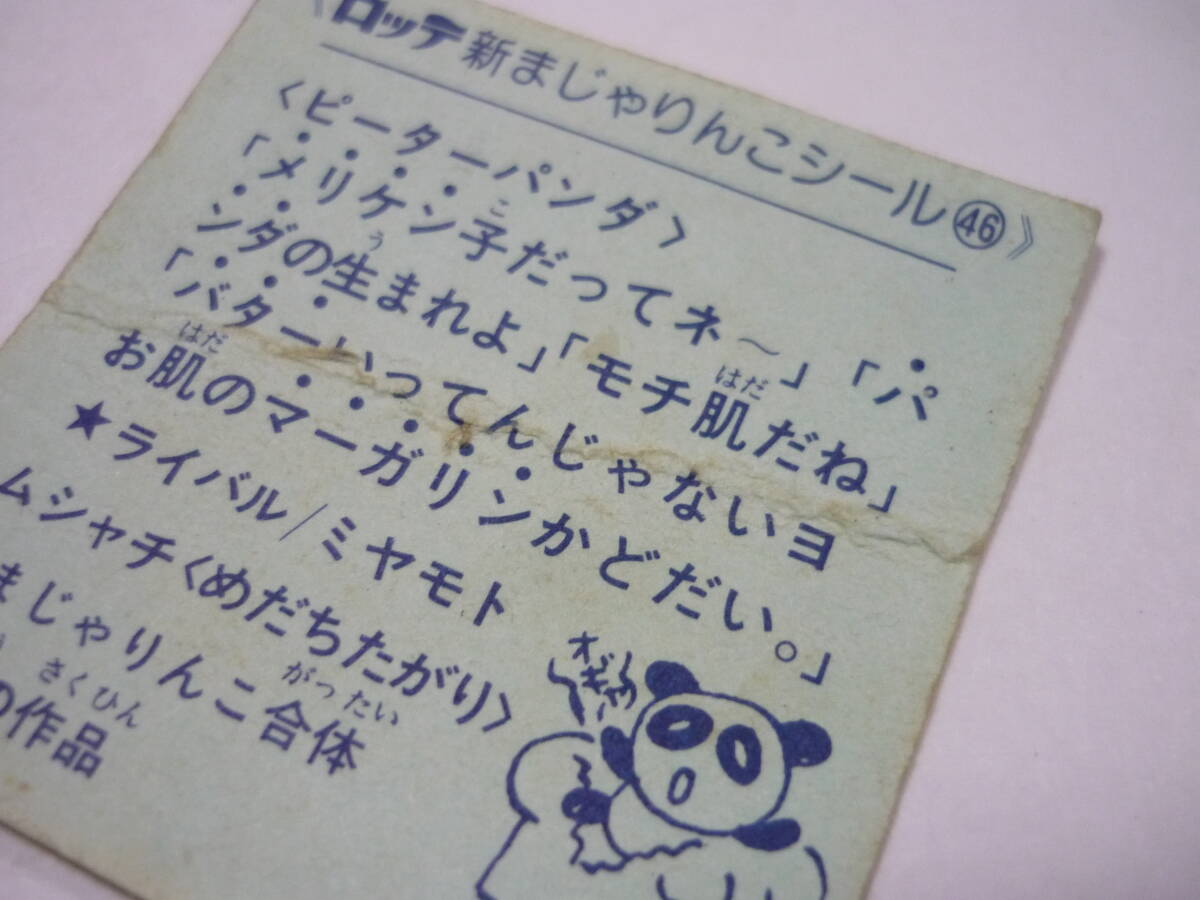 《ロッテ新まじゃりんこシール㊻》
〈ピーターパンダ〉
「メリケン子だってネ〜」「パ
ンダの生まれよ」「モチ肌だね」
「バターいってんじゃないヨ
お肌のマーガリンかどだい。」
★ライバル/ミヤモト
ムシャチ〈めだちたがり〉
まじゃりんこ合体
の作品